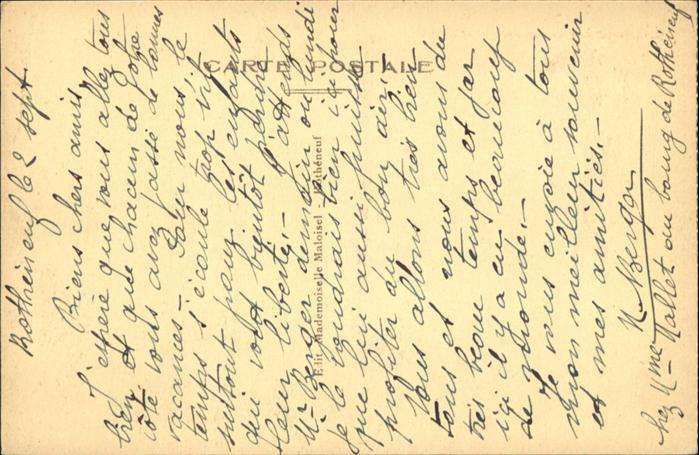 Rothéneuf le 2 sept.
Biens chers amis
J'espère que vous allez tous
bien et que chacun de votre
côté vous avez passé de bonnes
vacances — Pour nous, le
temps s'écoule trop vite
surtout pour les enfants
qui vont bientôt perdre
leur liberté. — J'attends
Mr Berger demain ou lundi
je le voudrais bien ici pour
que lui aussi puisse
profiter du bon air!
Nous allons très bien
tous et nous avons du
très beau temps et par
ici il y a eu beaucoup
de monde. —
Je vous envoie à tous
mon meilleur souvenir
et mes amitiés. —
N. Berger
chez Mme Mallet au bourg de Rothéneuf
CARTE POSTALE
Edit. Mademoiselle Maloisel - Rothéneuf